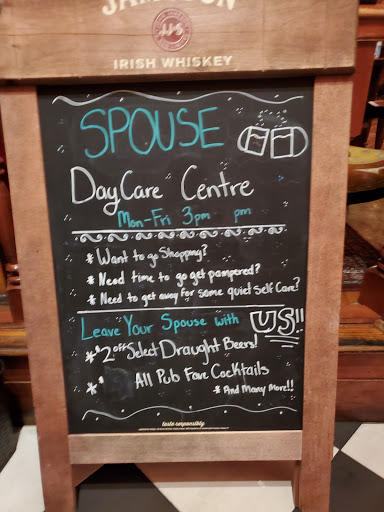 JAMESON
JJ&S
IRISH WHISKEY
SPOUSE
DayCare Centre
Mon-Fri 3pm pm
* Want to go Shopping?
* Need time to go get pampered?
* Need to get away for some quiet Self Care?
Leave Your Spouse with US!!
* $2 off Select Draught Beers!
* $ All Pub Fave Cocktails
* And Many More!!
taste responsibly